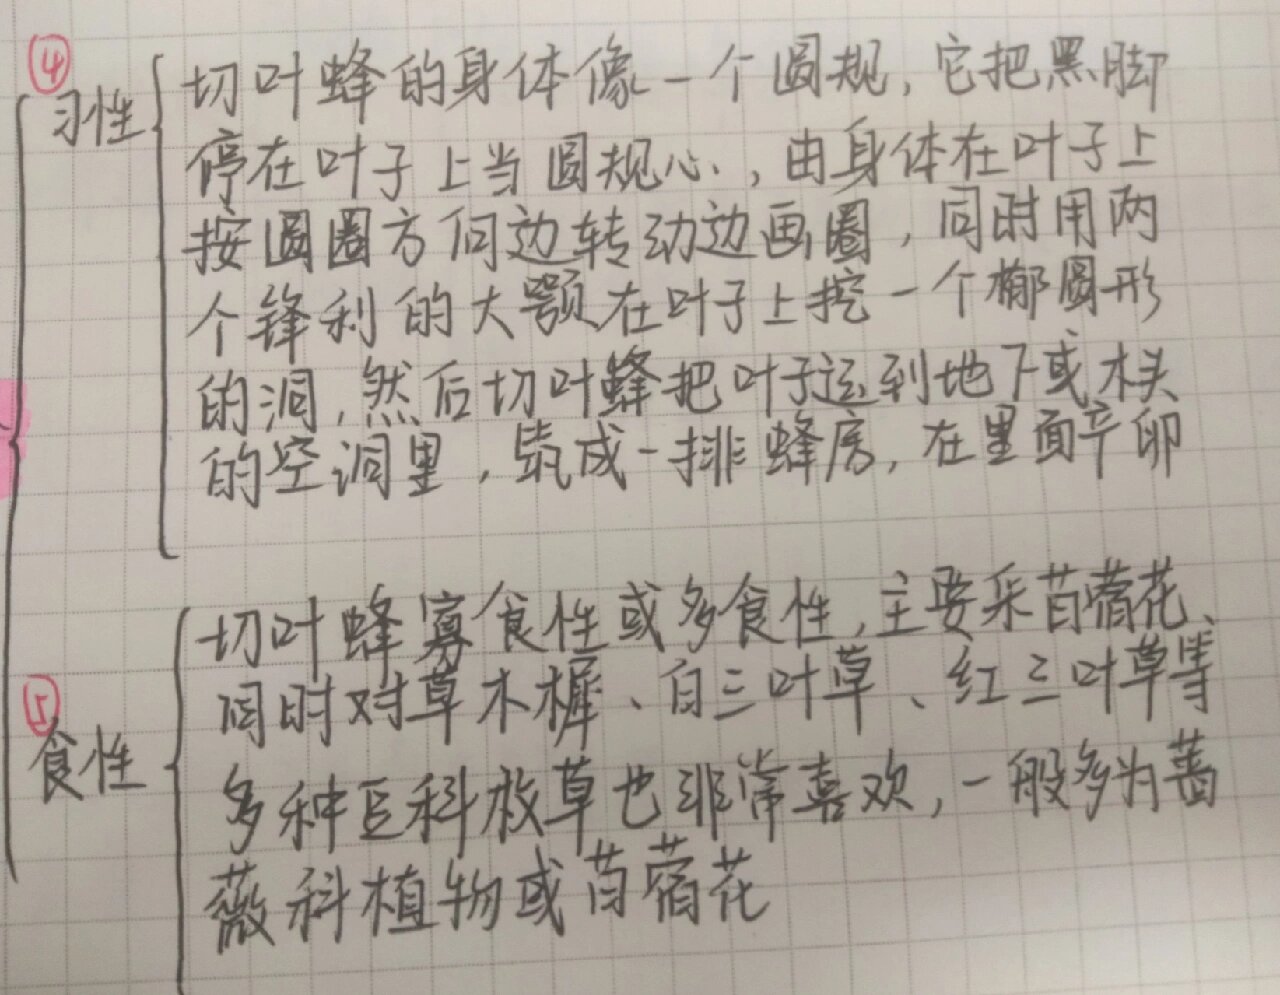 ④
习性
切叶蜂的身体像一个圆规,它把黑脚
停在叶子上当圆规心,由身体在叶子上
按圆圈方向边转动边画圈,同时用两
个锋利的大颚在叶子上挖一个椭圆形
的洞,然后切叶蜂把叶子运到地下或木头
的空洞里,筑成一排蜂房,在里面产卵
⑤
食性
切叶蜂寡食性或多食性,主要采苜蓿花、
同时对草木樨、白三叶草、红三叶草等
多种豆科牧草也非常喜欢,一般多为蔷
薇科植物或苜蓿花